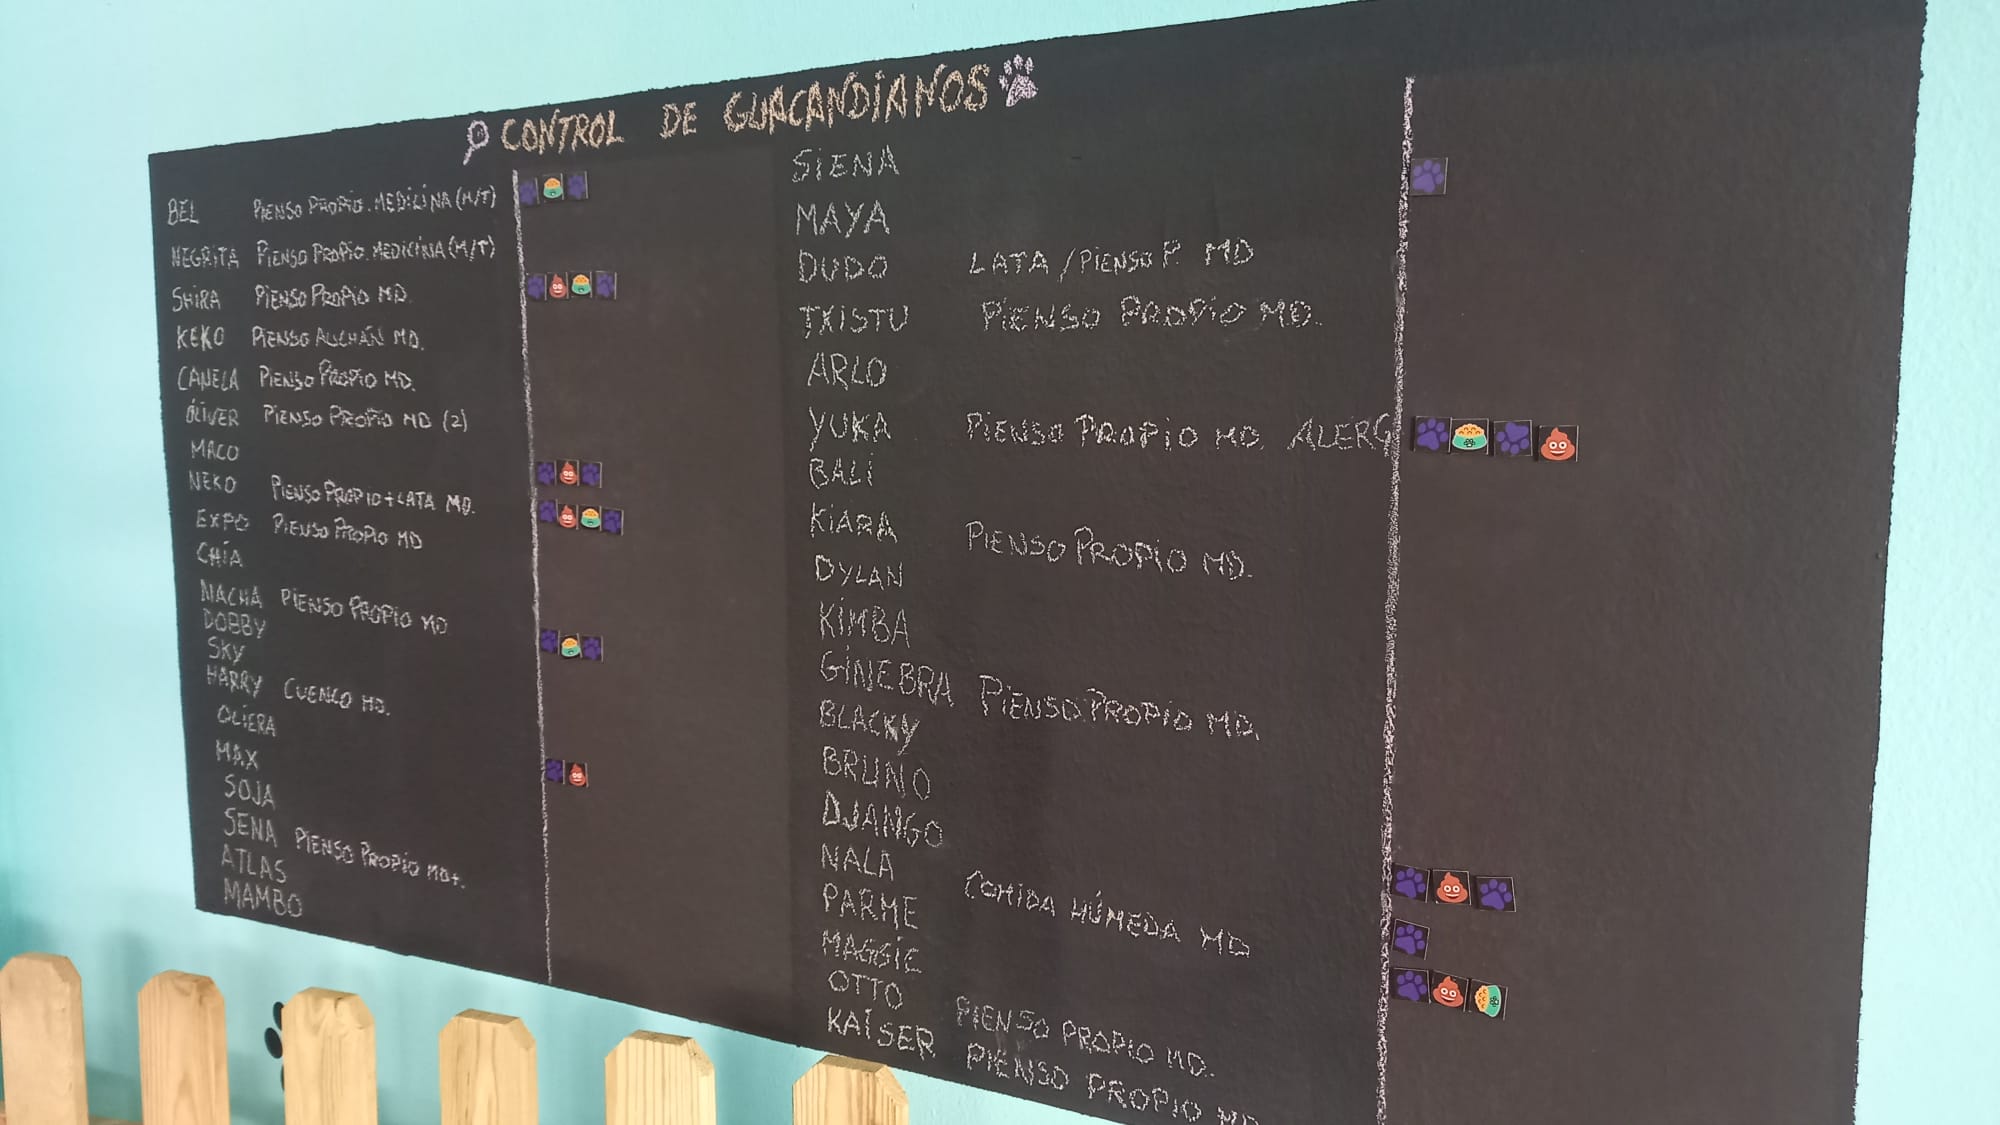 CONTROL DE GUACANDIANOS
BEL PIENSO PROPIO. MEDICINA (M/T)
NEGRITA PIENSO PROPIO. MEDICINA (M/T)
SHIRA PIENSO PROPIO MD.
KEKO PIENSO AUCHÁN MD.
CANELA PIENSO PROPIO MD.
OLIVER PIENSO PROPIO MD (2)
MACO
NEKO PIENSO PROPIO + LATA MD.
EXPO PIENSO PROPIO MD
CHÍA
NACHA PIENSO PROPIO MD
DOBBY
SKY
HARRY CUENCO MD.
OLIERA
MAX
SOJA
SENA PIENSO PROPIO MD+.
ATLAS
MAMBO
SIENA
MAYA
DUDO LATA / PIENSO P. MD
TXISTU PIENSO PROPIO MD.
ARLO
YUKA PIENSO PROPIO MD. ALERG
BALI
KIARA PIENSO PROPIO MD.
DYLAN
KIMBA
GINEBRA PIENSO PROPIO MD.
BLACKY
BRUNO
DJANGO
NALA
PARME COMIDA HÚMEDA MD
MAGGIE
OTTO PIENSO PROPIO MD.
KAISER PIENSO PROPIO MD